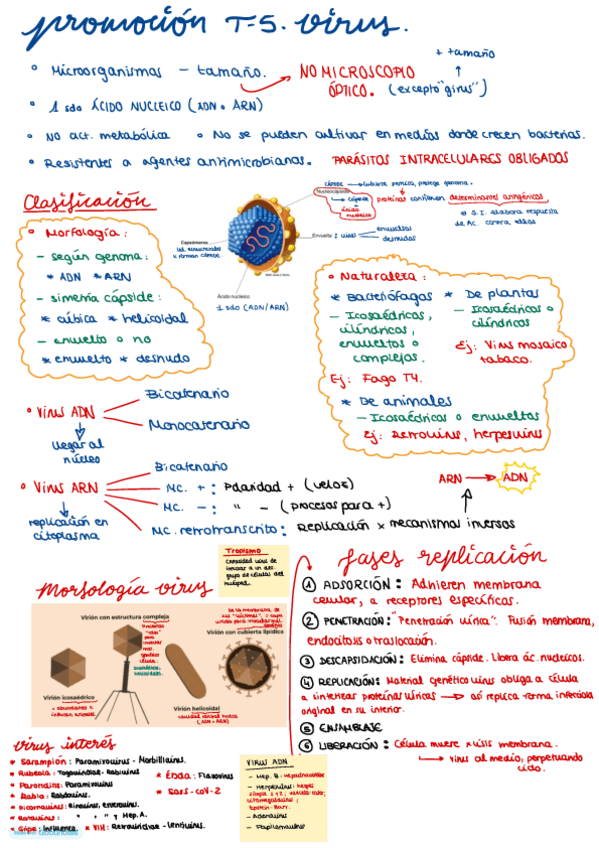 promoción T-5. virus.
◦ Microorganismos - tamaño. → NO MICROSCOPIO ÓPTICO. (excepto "girus")
+ + tamaño
◦ 1 solo ÁCIDO NUCLEICO (ADN o ARN)
• NO act. metabólica • No se pueden cultivar en medios donde crecen bacterias.
• Resistentes a agentes antimicrobianos. PARÁSITOS INTRACELULARES OBLIGADOS
Clasificación
◦ Morfología:
- según genoma:
* ADN * ARN
- simetría cápside:
* cúbica * helicoidal
- envuelto o no
* envuelto * desnudo
CÁPSIDE → Cubierta proteica, protege genoma.
Nucleocápside
→ cápside
ácido nucleico
proteínas contienen determinantes antigénicos
el S.I. elabora respuesta de Ac. contra ellos
Capsómeros
Ud. estructurales
forman cápside.
Envuelta
virus
envueltos
desnudos
Ácido nucleico
1 solo (ADN/ARN)
◦ Naturaleza:
* Bacteriófagos
- Icosaédricos, cilíndricos, envueltos o complejos.
Ej: Fago T4.
* De plantas
- Icosaédricos o cilíndricos
Ej: Virus mosaico tabaco.
* De animales
- Icosaédricos o envueltos
Ej: Retrovirus, herpesvirus
◦ Virus ADN
Bicatenario
Monocatenario
llegar al núcleo
◦ Virus ARN
Bicatenario
MC. + : Polaridad + (veloz)
MC. - : " - (procesos para +)
MC. retrotranscrito: Replicación x mecanismos inversos
replicación en citoplasma
ARN → ADN
Tropismo
Capacidad virus de infectar a un det. grupo de células del huésped.
Morfología virus
Virión con estructura compleja
Virión con cubierta lipídica
Virión icosaédrico
Virión helicoidal
fases replicación
① ADSORCIÓN: Adhieren membrana celular, a receptores específicos.
② PENETRACIÓN: "Penetración vírica". Fusión membrana, endocitosis o translocación.
③ DESCAPSIDACIÓN: Elimina cápside. Libera ác. nucleicos.
④ REPLICACIÓN: Material genético virus obliga a célula a sintetizar proteínas víricas → así replica forma infecciosa original en su interior.
⑤ ENSAMBLAJE
⑥ LIBERACIÓN: Célula muere x lisis membrana.
→ virus al medio, perpetuando ciclo.
virus interés
* Sarampión: Paramixovirus - Morbillivirus.
* Rubeola: Togaviridae - Rubivirus
* Parotiditis: Paramixovirus
* Rabia: Rabdovirus.
* Picornavirus: Rinovirus, enterovirus.
* Rotavirus: " " y Hep. A.
* Gripe: Influenza.
* VIH: Retroviridae - Lentivirus.
* Ébola: Filovirus
* SARS-CoV-2
VIRUS ADN
- Hep. B: Hepadnaviridae
- Herpesvirus: herpes simple 1 y 2; varicela-zóster; citomegalovirus; Epstein-Barr.
- Adenovirus
- Papilomavirus